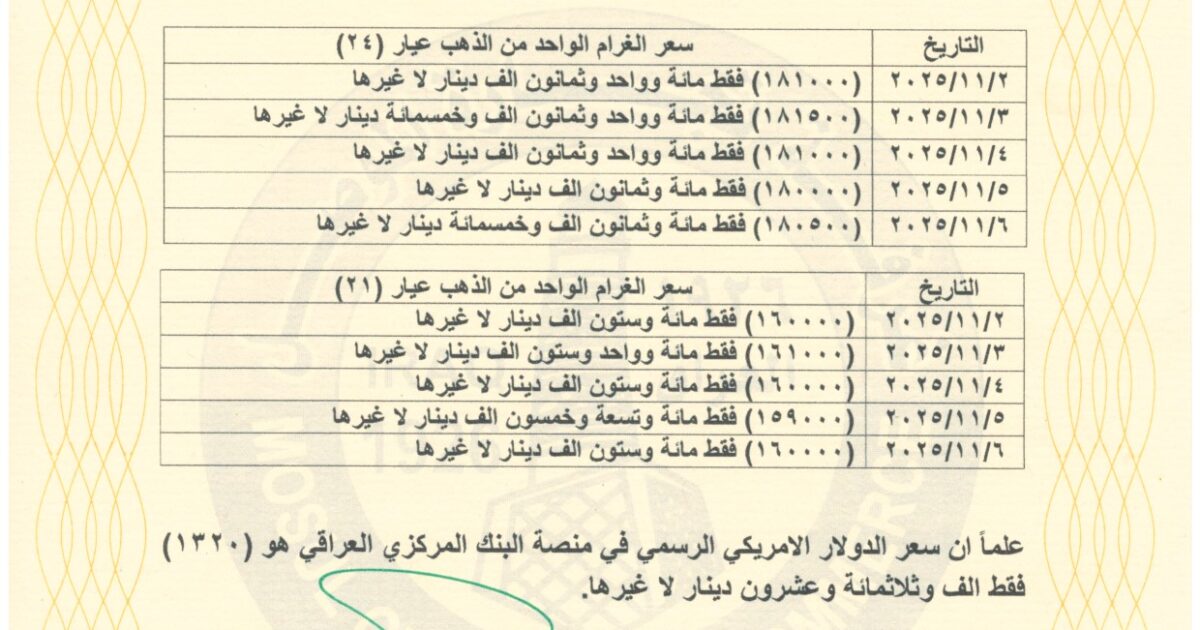 التاريخ سعر الغرام الواحد من الذهب عيار (٢٤)
٢٠٢٥/١١/٢ (١٨١٠٠٠) فقط مائة وواحد وثمانون الف دينار لا غيرها
٢٠٢٥/١١/٣ (١٨١٥٠٠) فقط مائة وواحد وثمانون الف وخمسمائة دينار لا غيرها
٢٠٢٥/١١/٤ (١٨١٠٠٠) فقط مائة وواحد وثمانون الف دينار لا غيرها
٢٠٢٥/١١/٥ (١٨٠٠٠٠) فقط مائة وثمانون الف دينار لا غيرها
٢٠٢٥/١١/٦ (١٨٠٥٠٠) فقط مائة وثمانون الف وخمسمائة دينار لا غيرها
التاريخ سعر الغرام الواحد من الذهب عيار (٢١)
٢٠٢٥/١١/٢ (١٦٠٠٠٠) فقط مائة وستون الف دينار لا غيرها
٢٠٢٥/١١/٣ (١٦١٠٠٠) فقط مائة وواحد وستون الف دينار لا غيرها
٢٠٢٥/١١/٤ (١٦٠٠٠٠) فقط مائة وستون الف دينار لا غيرها
٢٠٢٥/١١/٥ (١٥٩٠٠٠) فقط مائة وتسعة وخمسون الف دينار لا غيرها
٢٠٢٥/١١/٦ (١٦٠٠٠٠) فقط مائة وستون الف دينار لا غيرها
علماً ان سعر الدولار الامريكي الرسمي في منصة البنك المركزي العراقي هو (١٣٢٠)
فقط الف وثلاثمائة وعشرون دينار لا غيرها.